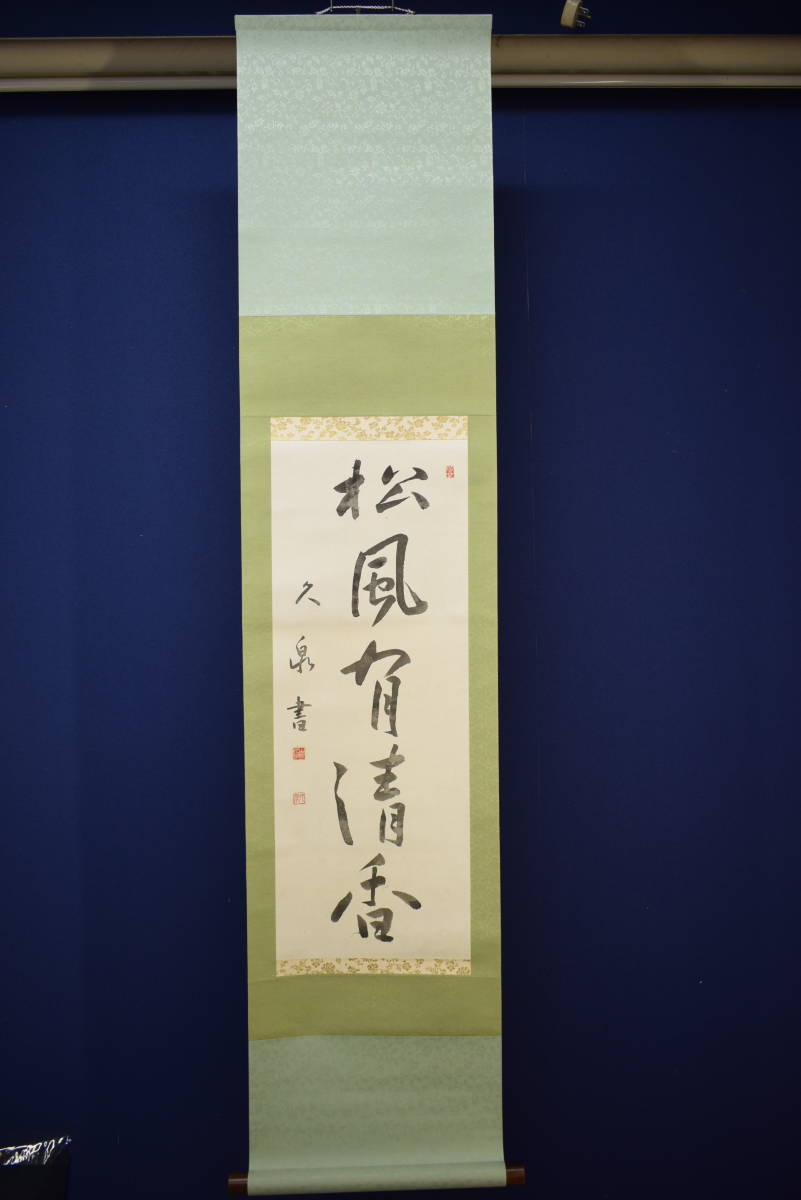 松風有清香
久泉書